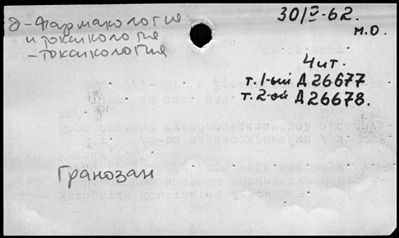 д-Фармакология
и токсикология
-токсикология
30/V-62.
м.о.
4 ит.
т. 1-ый Д 26677
т. 2-ой Д 26678.
Гранозан